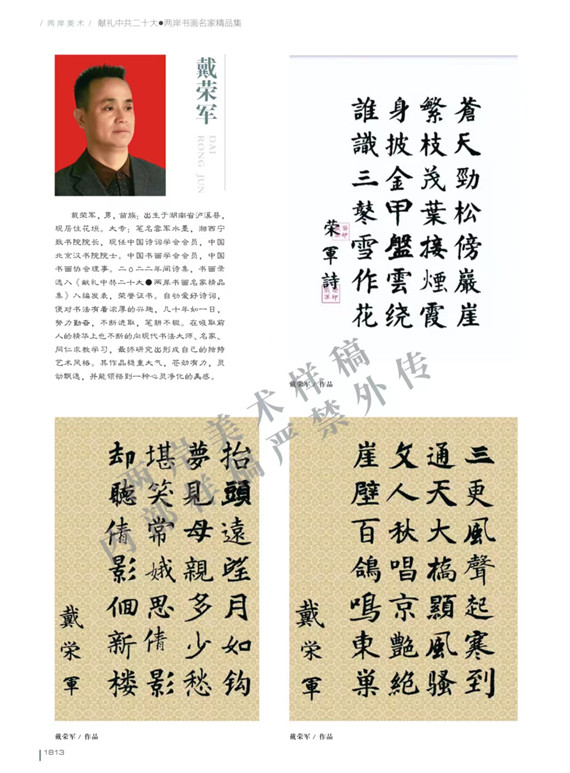 / 两岸美术 / 献礼中共二十大●两岸书画名家精品集
戴荣军
DAI
RONG JUN
戴荣军，男，苗族；出生于湖南省泸溪县，
现居住花垣。大专；笔名蓉军水墨，湘西宁
致书院院长，现任中国诗词学会会员，中国
北京汉书院院士。中国书画学会会员，中国
书画协会理事。二0二二年间诗集，书画录
选入《献礼中共二十大●两岸书画名家精品
集》入编发表，荣誉证书。自幼爱好诗词，
便对书法有着浓厚的兴趣，几十年如一日，
努力勤奋，不断进取，笔耕不辍。在吸取前
人的精华上也不断的向现代书法大师、名家、
同仁求教学习，最终研究出形成自己的独特
艺术风格。其作品稳重大气，苍劲有力，灵
动飘逸，并能领悟到一种心灵净化的美感。
蒼天勁松傍巖崖
繁枝茂葉接煙霞
身披金甲盤雲绕
誰識三鼕雪作花
荣軍詩
戴荣军 / 作品
抬頭遠望月如钩
夢見母親多少愁
堪笑常娥思倩影
却聽倩影佪新楼
戴荣軍
戴荣军 / 作品
三更風聲起寒到
通天大槁顯風骚
文人秋唱京艷絕
崖壁百鸽鳴東巢
戴荣軍
戴荣军 / 作品
两岸美术样稿
内部样稿严禁外传
1813